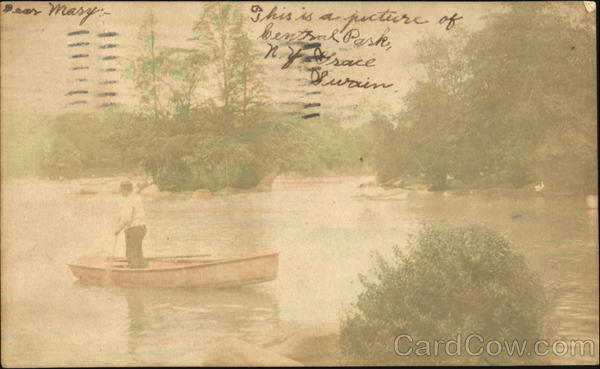 Dear Mary:-
This is a picture of
Central Park,
N.Y. Grace
Swain
CardCow.com